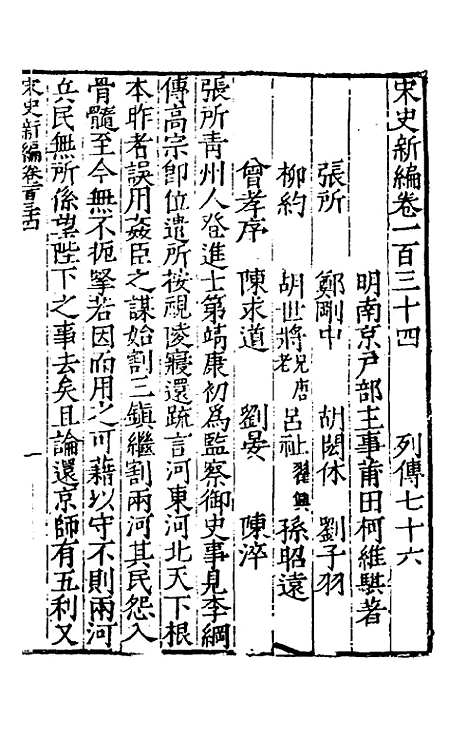 宋史新編卷一百三十四　列傳七十六
明南京戶部主事莆田柯維騏著
張所　鄭剛中　胡閎休　劉子羽
柳約　胡世將兄唐老　呂祉　翟興　孫昭遠
曾孝序　陳求道　劉晏　陳淬
張所青州人登進士第靖康初爲監察御史事見李綱
傳高宗卽位遣所按視陵寢還疏言河東河北天下根
本昨者誤用姦臣之謀始割三鎮繼割兩河其民怨入
骨髓至今無不扼腕若因而用之可藉以守不則兩河
兵民無所係望陛下之事去矣且論還京師有五利又
宋史新編卷一百三十四
一